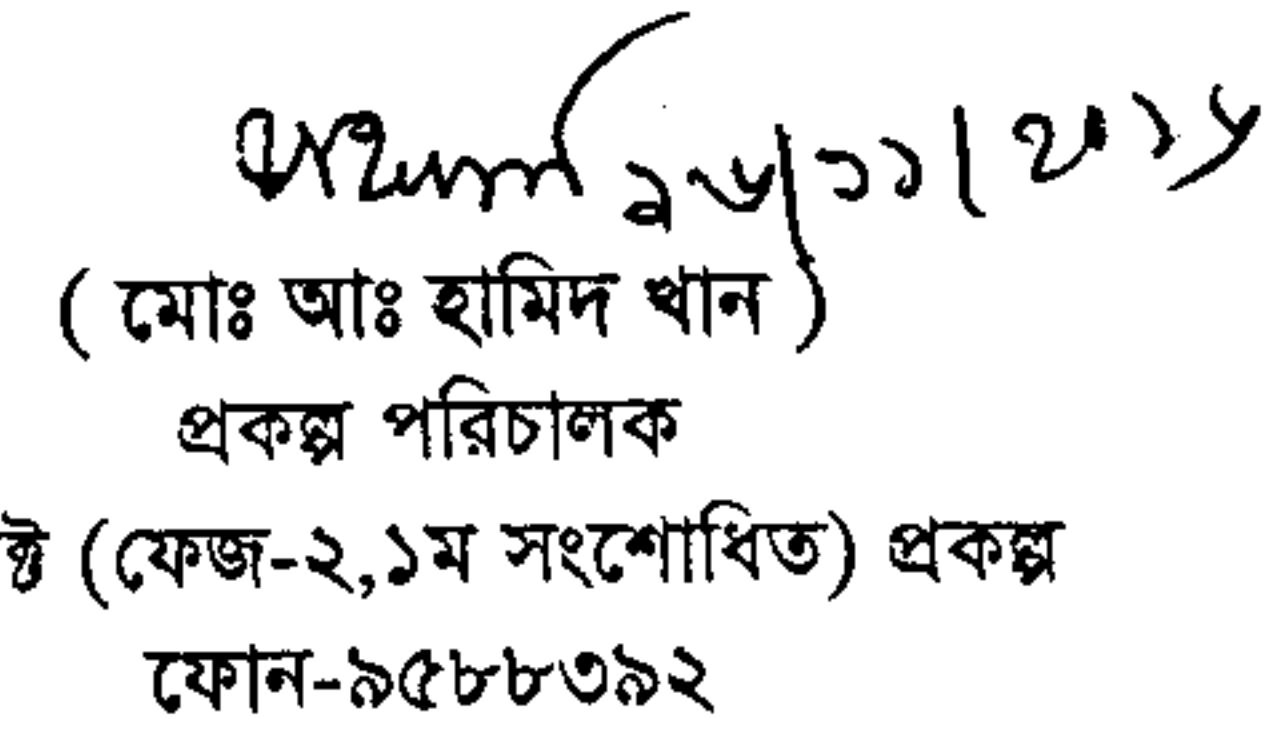 ( মোঃ আঃ হামিদ খান )
প্রকল্প পরিচালক
ক্ট (ফেজ-২,১ম সংশোধিত) প্রকল্প
ফোন-৯৫৮৮৩৯২